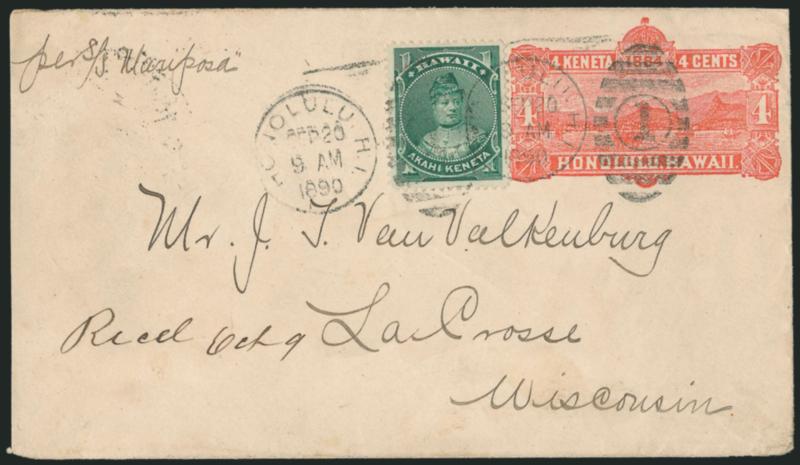 per S/S "Mariposa"
HONOLULU. H.I.
FEB 20
9 AM
1890
HAWAII
1 1
AKAHI KENETA
4 KENETA 1884 4 CENTS
4 4
HONOLULU. HAWAII.
1
Mr. J. T. Van Valkenburg
Recd Oct 9 La Crosse
Wisconsin